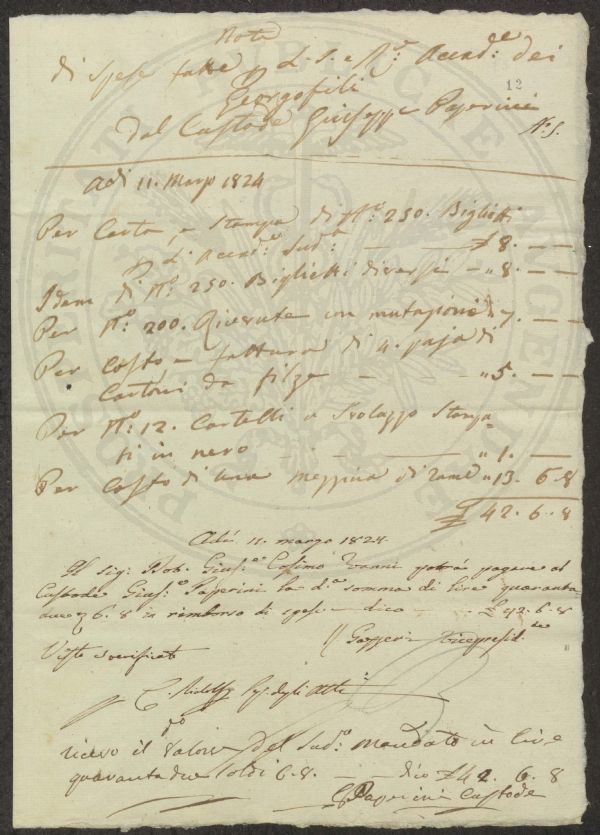 Nota
di Spese fatte p. L. S. e R.e Accad.e dei
12
Georgofili
dal Custode Giuseppe Paperini
N.o 5.
Adi 11. Marzo 1824
Per Carta, e Stampa di N.o 250. Biglietti
p. L'Accad.e Sud.a — £ 8. — —
Idem di N.o 250. Biglietti diversi — " 8. — —
Per N.o 200. Ricevute con mutazione " 7. — —
Per costo e fattura di 4. paja di
Cartoni da filze — — " 5. — —
Per N.o 12. Cartelli a Svolazzo Stampa-
ti in nero — — " 1. — —
Per Costo di una mezzina di rame " 13. 6. 8
£ 42. 6. 8
Adì 11. marzo 1824.
Il Sig. Dott. Gius.e Cosimo Vanni potrà pagare al
Custode Gius.e Paperini la d.a somma di lire quaranta
due e 6. 8 in rimborso di spese — dico — £ 42. 6. 8
Gazzeri Vicepresid.te
Visto e verificato
C. Ridolfi Seg. degli Atti
ricevo il Valore del Sud.o Mandato in lire
quarantadue soldi 6. 8. — dico £ 42. 6. 8
G Paperini Custode
PROSPERITATI PUBLICAE AUGENDAE